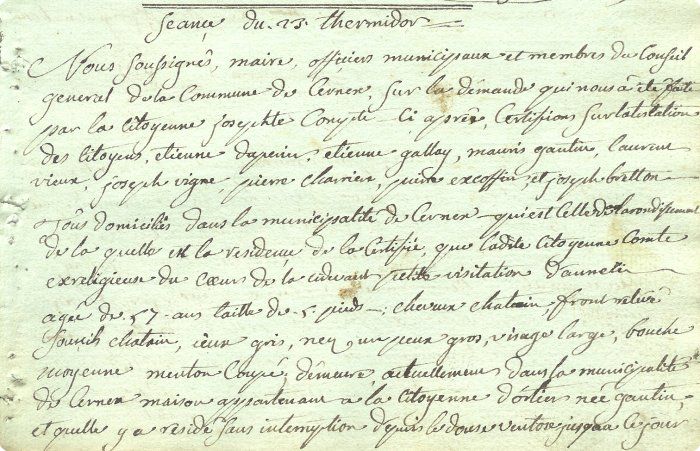 Seançe du 23 thermidor
Nous soussignés, maire, officiers municipaux et membres du Conseil
general de la Commune de Cernex, sur la demande qui nous a été faite
par la Citoyenne josephte Compte Ci après, Certifions sur latestation
des Citoyens, etienne dapeirier, etienne gallay, mauris gautin, laurent
vieux, joseph vigne, pierre charrier, pierre excoffier, et joseph bretton
Tous domiciliés dans la municipalité de Cernex qui est Celle de larondissement
de la quelle est la residence de la Certifié, que ladite Citoyenne Comte
exreligieuse du Cœurs de la cidevant petitte visitation d'annetii
agée de 57 ans taille de 5 pieds, cheveux chatain, front relevé
sourcils chatain, ieux gris, nez un peux gros, visage large, bouche
moyenne menton Coupé, demeure, actuellement dans la municipalité
de Cernex maison appartenant a la Citoyenne d'orlier née gautin,
et quelle y a residé sans interruption depuis le douse ventose jusqua ce jour